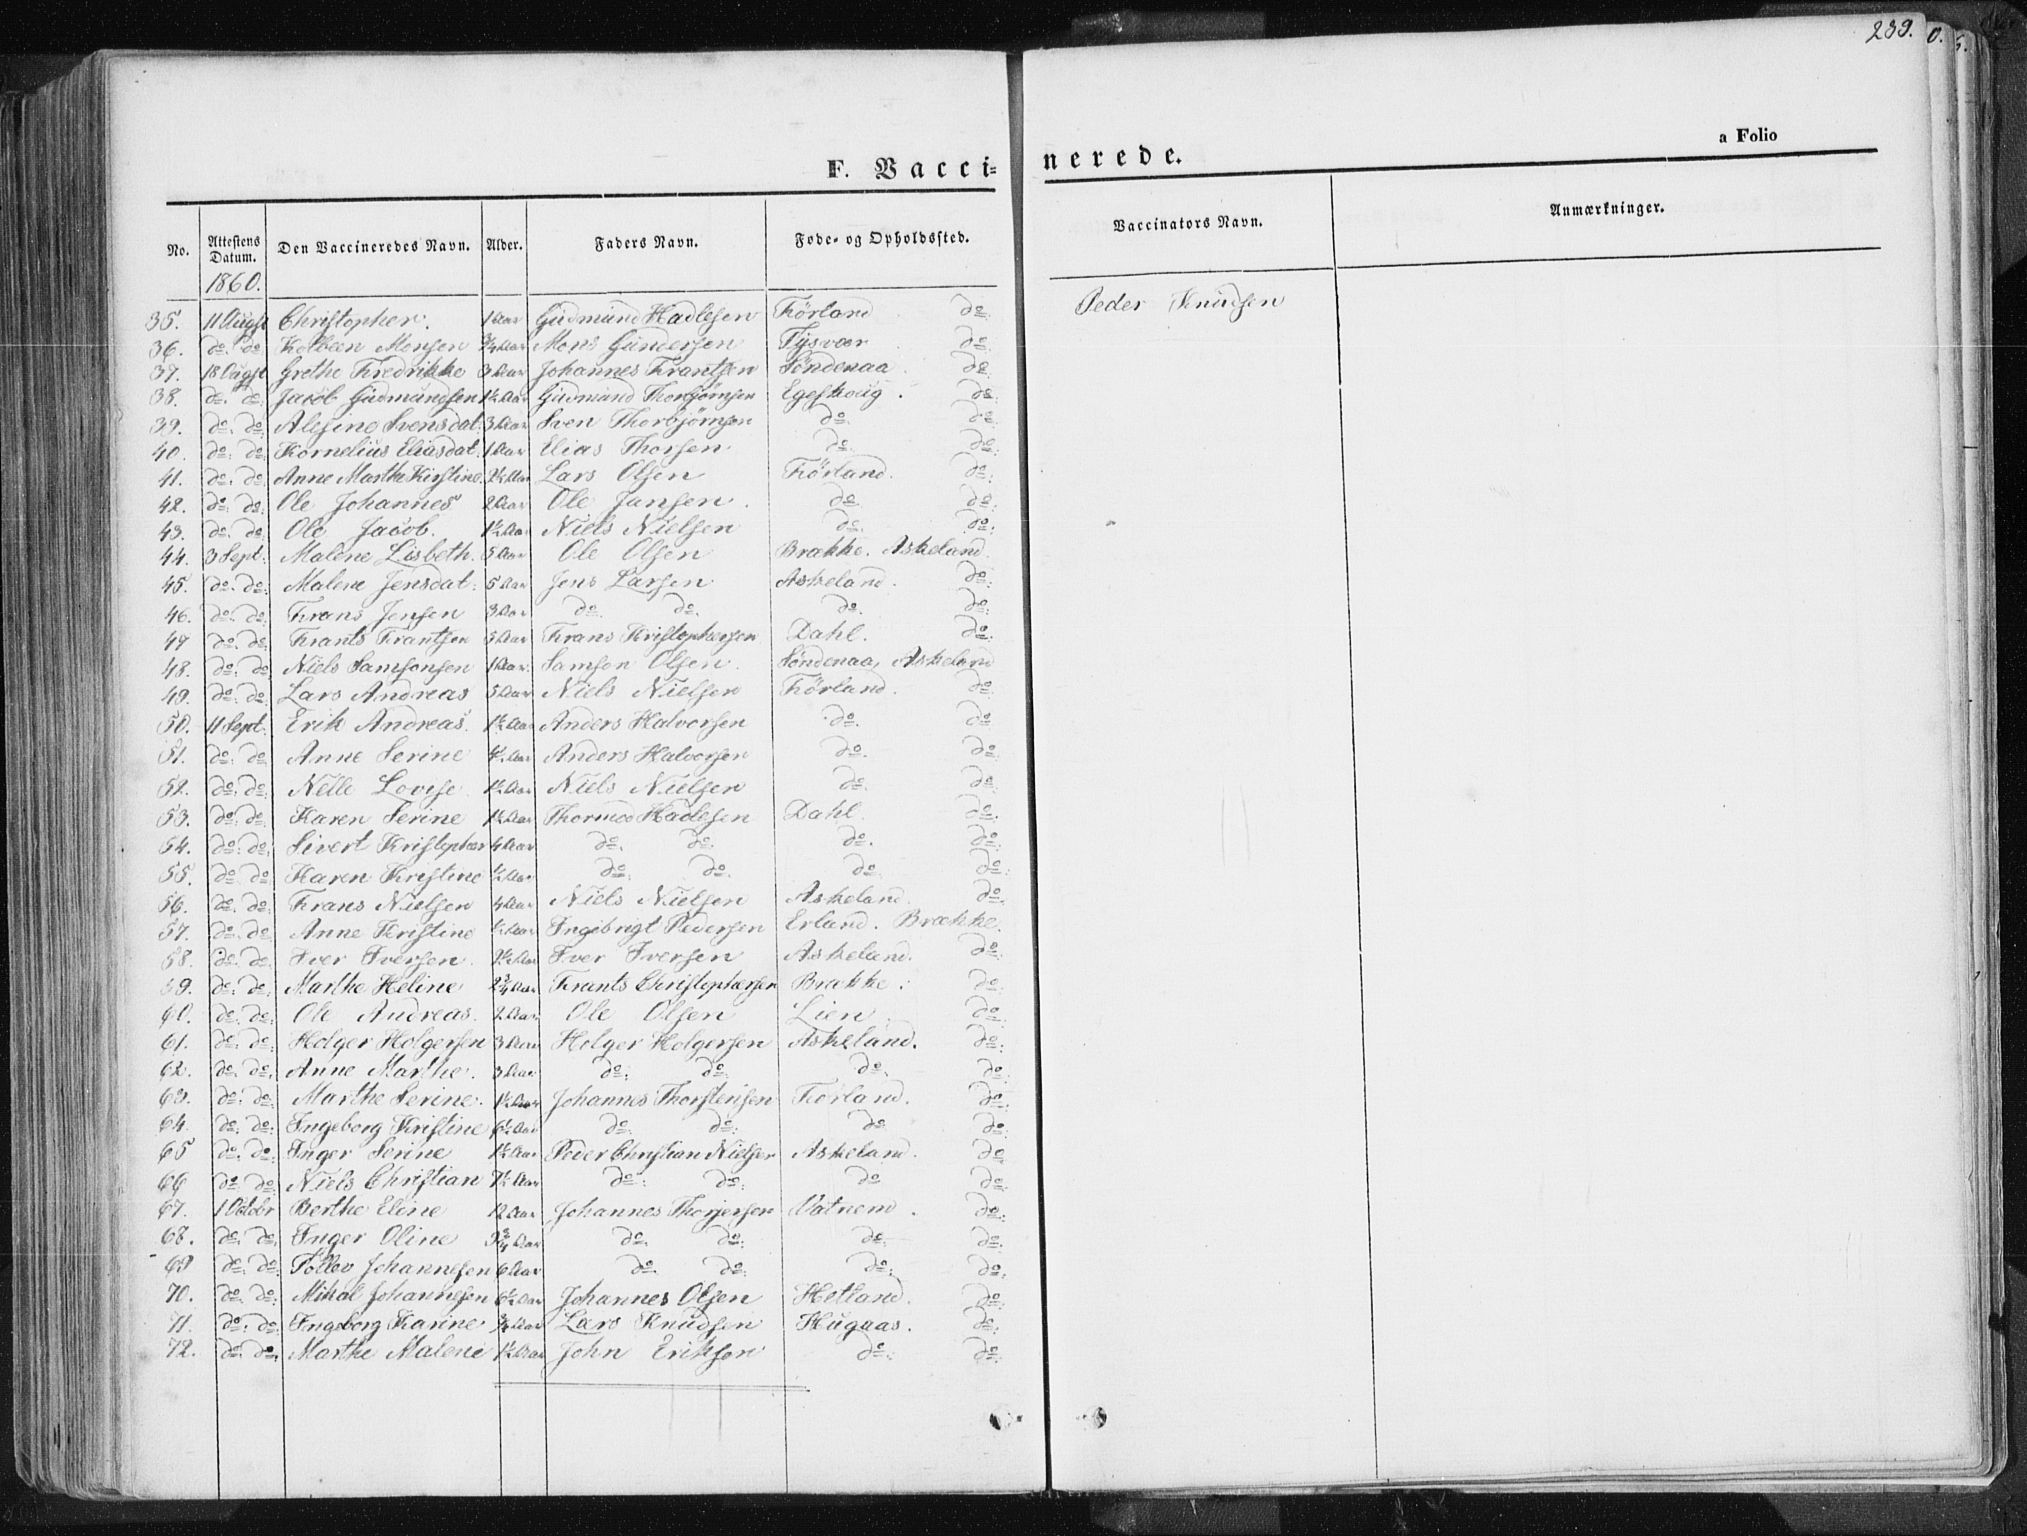 239.
0.
5.
a Folio
F. Vacci-
nerede.
No. Attestens Datum. Den Vaccineredes Navn. Alder. Faders Navn. Føde- og Opholdssted. Vaccinators Navn. Anmærkninger.
1860.
35. 11 Augst Christopher. 1 Aar Gudmund Hadlesen Førland do: Peder Knudsen
36. do. do: Kolbeen Monsen 3/4 Aar Mons Gundersen Tysvær do:
37. 18 Augst Grethe Fredrikke 3 Aar Johannes Frantsen Søndenaa do:
38. do. do: Jacob Gudmundsen 1½ Aar Gudmund Thorbjørnsen Egeskoug. do:
39. do. do: Alesine Svensdat: 3 Aar Sven Thorbjørnsen do: do:
40. do: do: Kornelius Eliasdat. 1 Aar Elias Thorsen do: do:
41. do: do: Anne Marthe Kirstine 2½ Aar Lars Olsen Førland. do:
42. do: do: Ole Johannes 2 Aar Ole Jansen. do: do:
43. do: do: Ole Jacob. 1½ Aar Niels Nielsen do: do:
44. 3 Sept: Malene Lisbeth. 5 Aar Ole Olsen Brække. Askeland.
45. do: do: Malene Jensdat: 5 Aar Jens Larsen Askeland. do:
46. do: do: Frans Jensen 3 Aar do: do: do: do:
47 do: do: Frants Frantsen 3 Aar Frans Kristophersen Dahl. do:
48. do: do: Niels Samsonsen 1 Aar. Samson Olsen. Søndenaa, Askeland
49. do: do: Lars Andreas 5 Aar Niels Nielsen Førland. do:
50. 11 Sept: Erik Andreas. 1½ Aar Anders Halvorsen do: do:
51. do: do: Anne Serine Aar Anders Halvorsen do: do:
52. do: do: Nelle Lovise 1½ Aar Niels Nielsen do: do:
53. do: do: Karen Serine 1½ Aar Thormod Hadlesen Dahl. do:
54. do: do: Sivert Kristopher 4 Aar do: do: do: do:
55. do: do: Karen Kristine ½ Aar do: do: do: do:
56. do: do: Frans Nielsen 4 Aar Niels Nielsen Askeland. do:
57. do: do: Anne Kristine ½ Aar Ingebrigt Pedersen Erland. Brække.
58. do: do: Iver Iversen. 2½ Aar Iver Iversen Askeland. do:
59. do: do: Marthe Heline 2¾ Aar Frants Christophersen Brække. do:
60. do: do: Ole Andreas. 2 Aar Ole Olsen Lien. do:
61. do: do: Holger Holgersen 3 Aar Holger Holgersen Askeland. do:
62. do: do: Anne Marthe. 3 Aar do: do: do: do:
63. do: do: Marthe Serine. 1½ Aar Johannes Thorstensen Førland. do:
64. do: do: Ingeborg Kristine 6½ Aar do: do: do: do:
65 do: do: Inger Serine 1½ Aar Peder Christian Nielsen Askeland. do:
66 do: do: Niels Christian 7½ Aar do: do: do do:
67. 1 Octobr Berthe Eline 12 Aar Johannes Thorjersen Vatnem. do:
68. do: do: Inger Oline 3¾ Aar do: do: do: do:
69 do: do: Tollev Johannesen 6 Aar do: do: do: do:
70. do: do: Mikal Johannesen 6½ Aar Johannes Olsen Hetland. do:
71. do: do: Ingeborg Karine ¾ Aar Lars Knudsen Hugaas. do:
72. do: do. Marthe Malene 1½ Aar John Eriksen do: do: